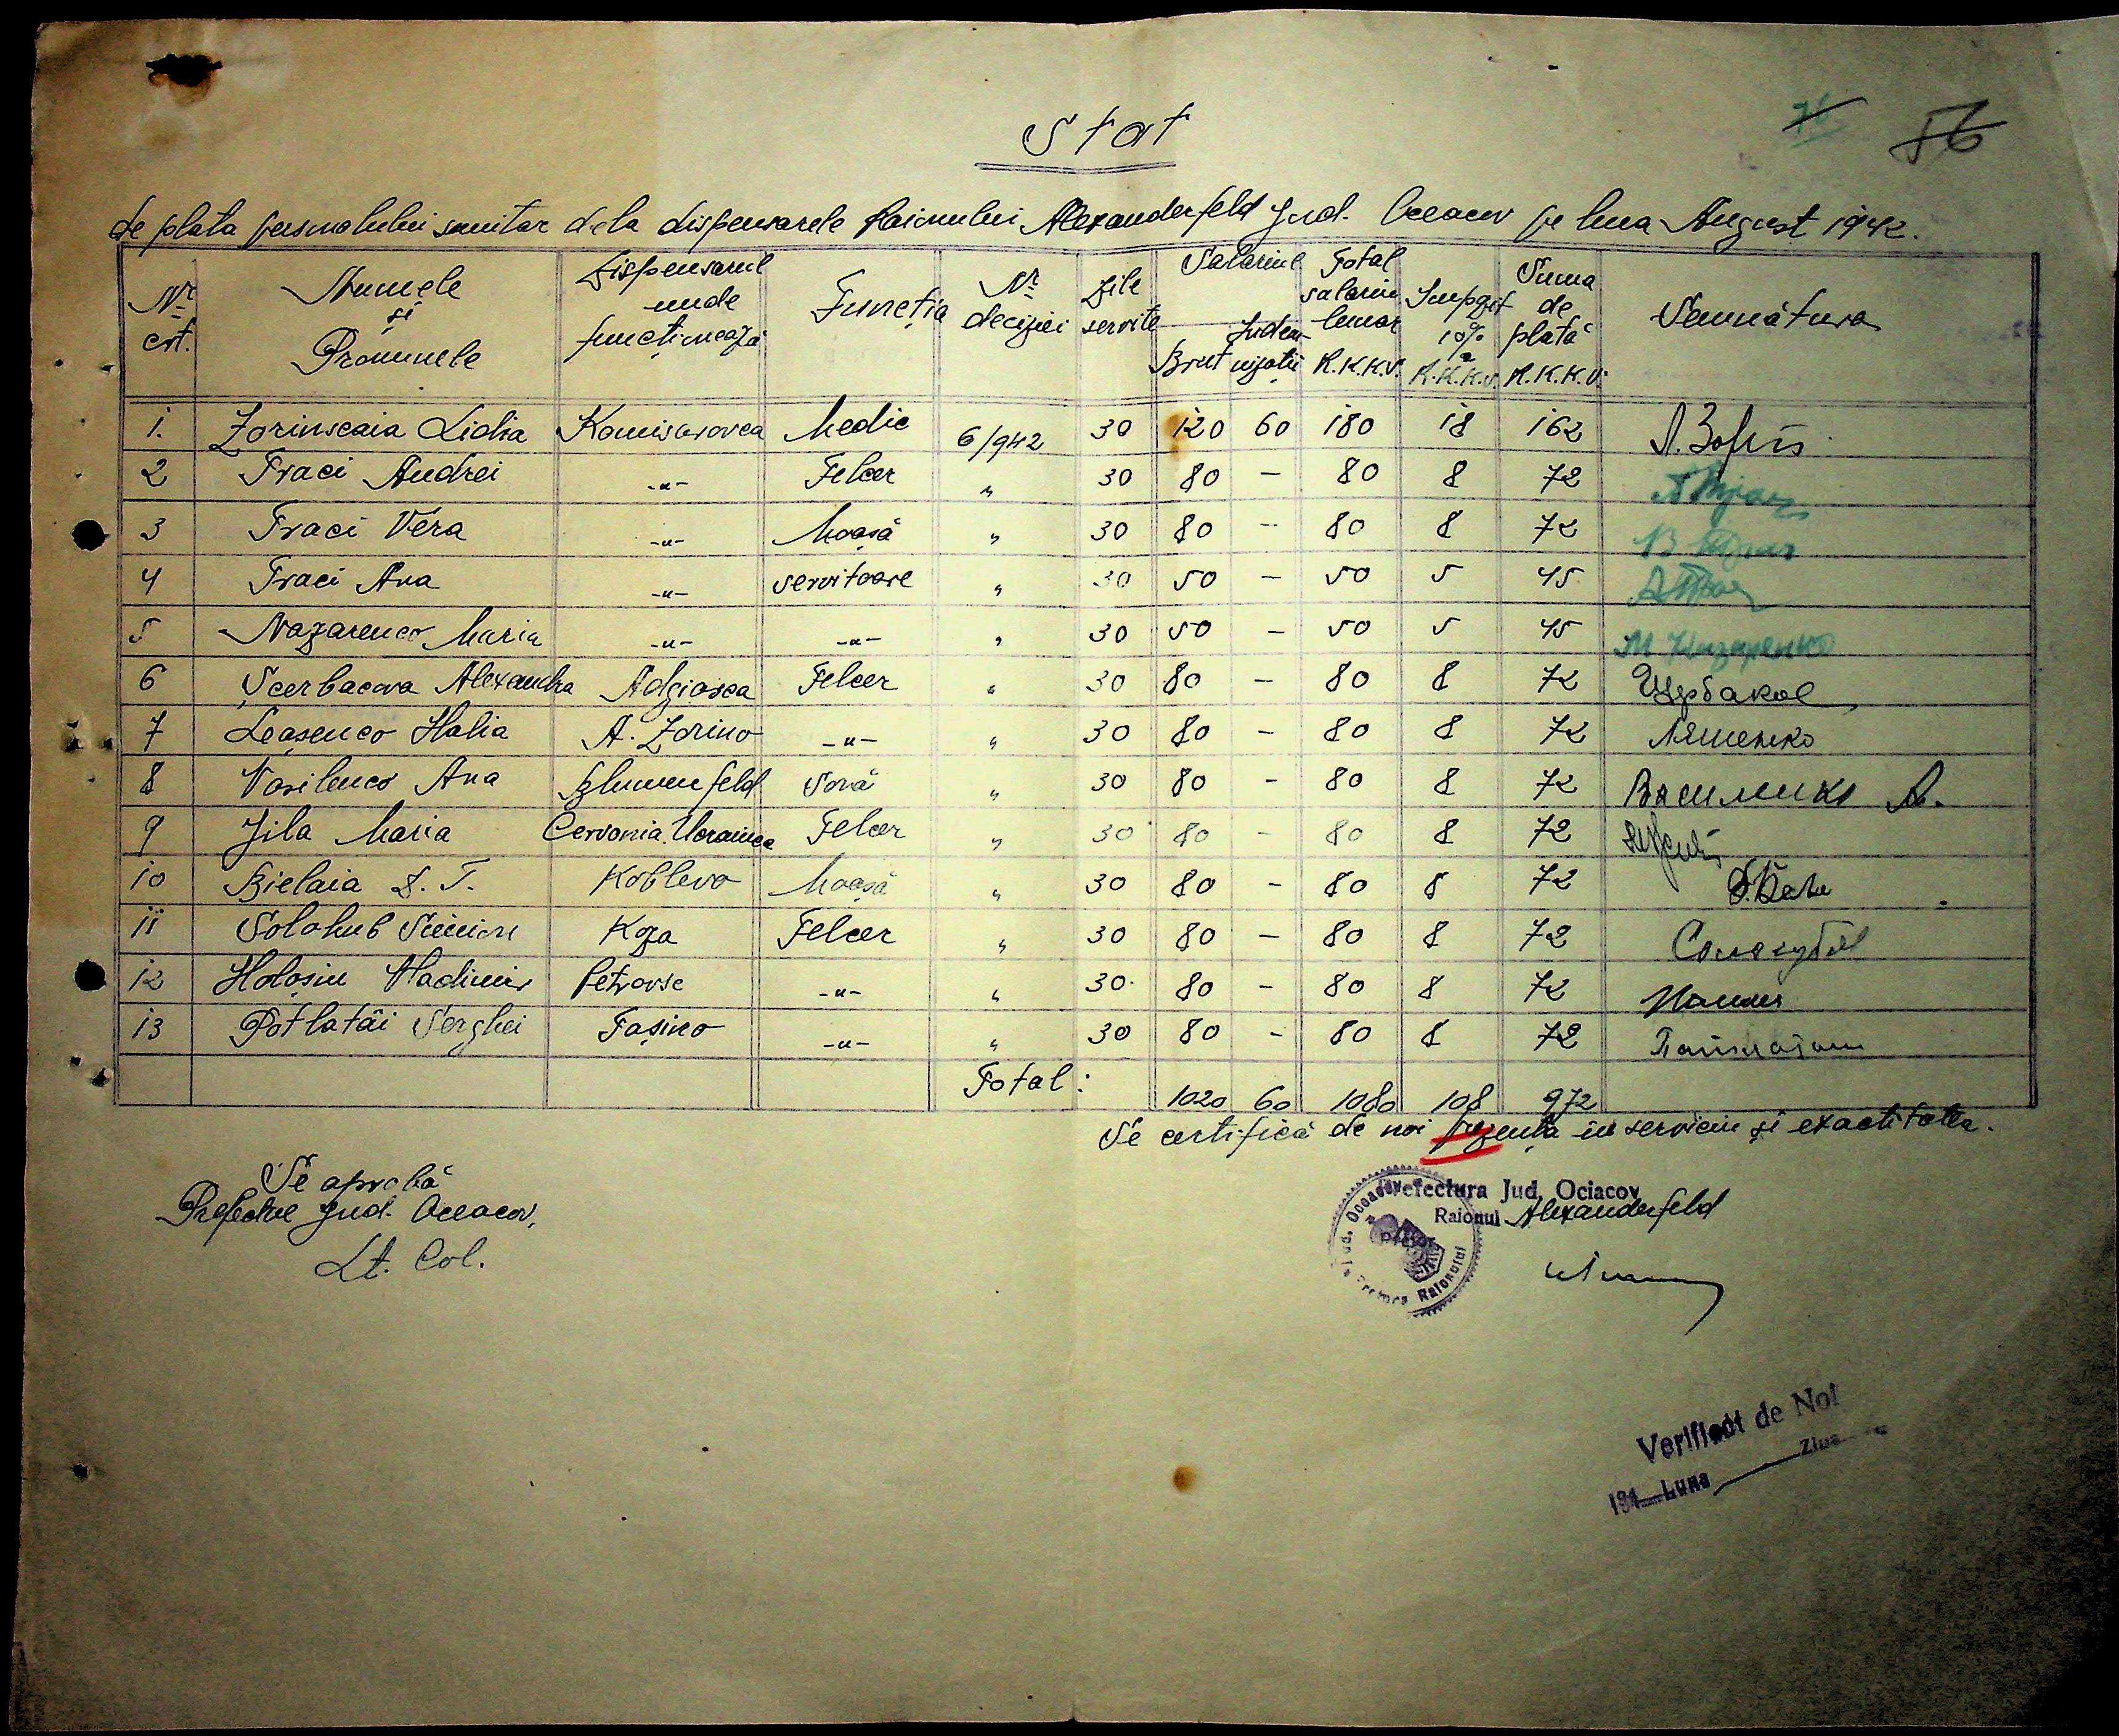 Stat
56
de plata personalului sanitar dela dispensarele Raionului Alexanderfeld Jud. Oceacov pe luna August 1942.
Nr. crt. Numele și Pronumele Dispensarul unde funcționează Funcția Nr. deciziei Zile servite Salariul Brut Indemnizații Total salariu lunar R.K.K.S. Impozit 10% R.K.K.S. Suma de plată R.K.K.S. Semnătura
1. Zorinscaia Lidia Komisarovca Medic 6/942 30 120 60 180 18 162
2 Traci Andrei -"- Felcer " 30 80 - 80 8 72
3 Traci Vera -"- Moașă " 30 80 - 80 8 72
4 Traci Ana -"- servitoare " 30 50 - 50 5 45
5 Nazarenco Maria -"- -"- " 30 50 - 50 5 45 М Назаренко
6 Șcerbacova Alexandra Adgiasca Felcer " 30 80 - 80 8 72 Щербаков
7 Leașenco Halia A. Zorino -"- " 30 80 - 80 8 72 Ляшенко
8 Vasilenco Ana Blumenfeld Soră " 30 80 - 80 8 72 Василенко А.
9 Jila Maria Cervonia Ucrainca Felcer " 30 80 - 80 8 72
10 Bielaia F. T. Koblevo Moașă " 30 80 - 80 8 72
11 Solohub Simion Koza Felcer " 30 80 - 80 8 72
12 Holoșin Vladimir Petrovsc -"- " 30 80 - 80 8 72
13 Potlatâi Serghei Tașino -"- " 30 80 - 80 8 72
Total: 1020 60 1080 108 972
Se certifică de noi prezența în serviciu și exactitatea.
Se aprobă
Prefectul Jud. Oceacov,
Lt. Col.
Prefectura Jud. Ociacov
Raionul Alexanderfeld
Pretor
Verificat de Noi
194 Luna Ziua